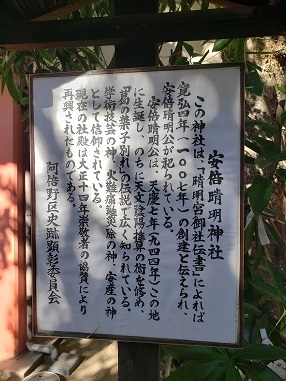 安倍晴明神社
この神社は、「晴明宮御社伝書」によれば
寛弘四年(一〇〇七年)の創建と伝えられ、
安倍晴明公が祀られている。
安倍晴明公は、天慶七年(九四四年)この地
に生誕し、のちに天文陰陽推算の術を修め、
『葛の葉子別れ』の伝説で広く知られている。
学術技芸の神、火難痛難災除の神、安産の神
として信仰されている。
現在の社殿は大正十四年崇敬者の協賛により
再興されたものである。
阿倍野区史跡顕彰委員会